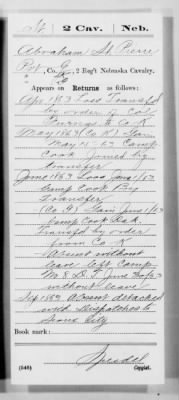 St | 2 Cav. | Neb.
Abraham St Pierre
Pvt, Co. G, 2 Reg't Nebraska Cavalry,
Appears on Returns as follows:
Apr 1863 Loss Transfd
by order of Col
Furnas to Co K
May 1863 (Co K) Gain
May 11-63 Camp
Cook Joined by
transfer
June 1863 Loss June 1/63
Camp Cook By
Transfer
(Co G) Gain June 1/63
Camp Cook
Transfd by order
from Co K
Absent without
leave left Camp
June 30/63
without leave
Sep 1863 Absent detached
with Dispatches to
Sioux City
Book mark:
(546)
Copyist.